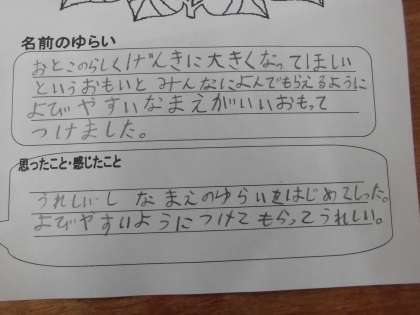 名前のゆらい
おとこのらしくげんきに大きくなってほしい
というおもいと みんなによんでもらえるように
よびやすいなまえがいいおもって
つけました。
思ったこと・感じたこと
うれしい し なまえのゆらいをはじめてしった。
よびやすいようにつけてもらってうれしい。